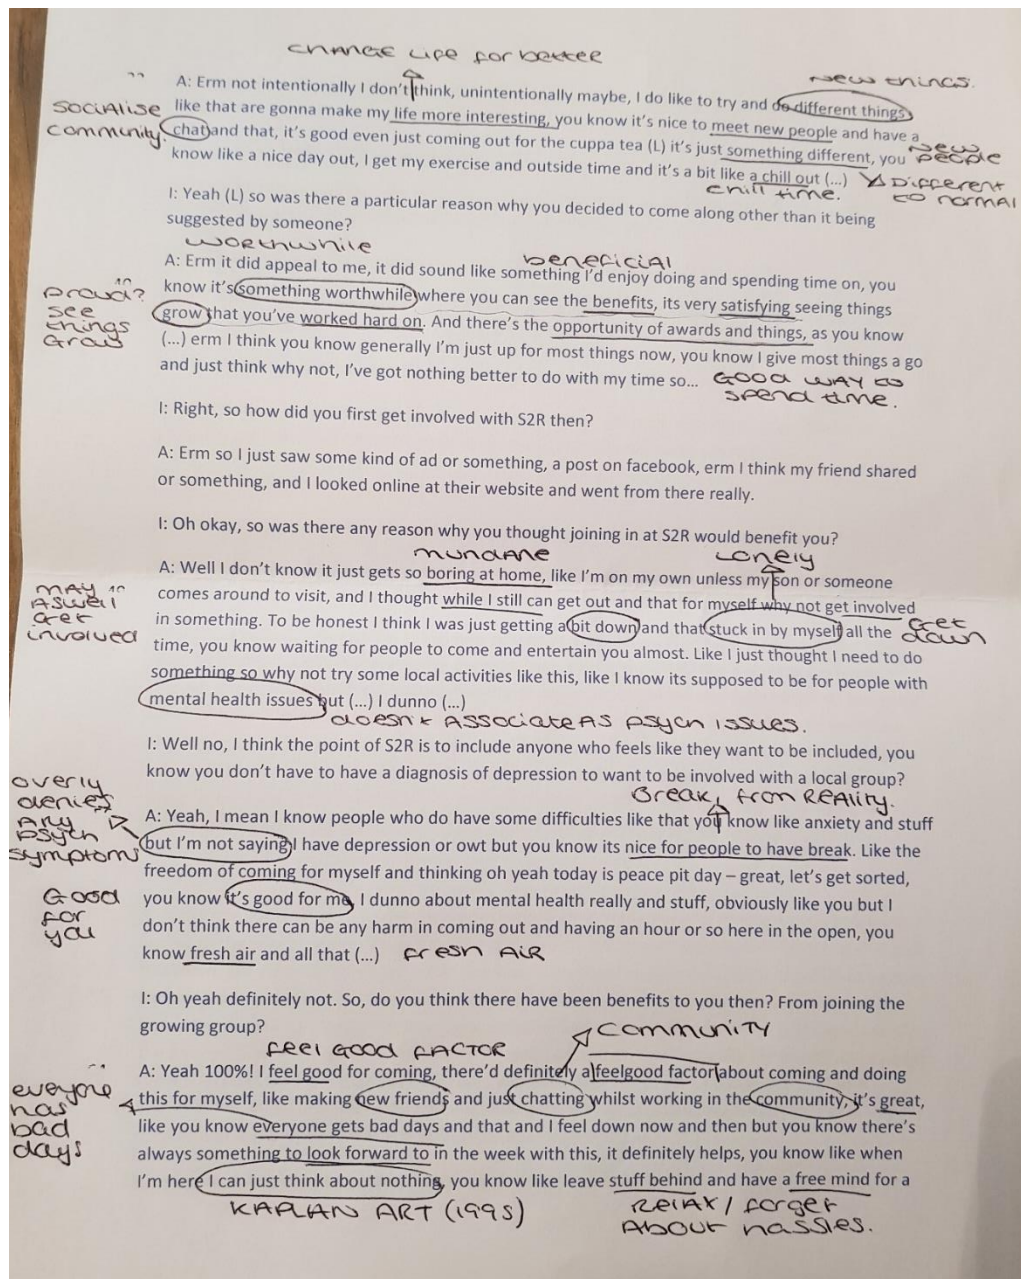 CHANGE LIFE for better
New things.
A: Erm not intentionally I don't think, unintentionally maybe, I do like to try and do different things
Socialise
like that are gonna make my life more interesting, you know it's nice to meet new people and have a
community.
chat and that, it's good even just coming out for the cuppa tea (L) it's just something different, you
New people
know like a nice day out, I get my exercise and outside time and it's a bit like a chill out (...)
chill time.
Different to normal
I: Yeah (L) so was there a particular reason why you decided to come along other than it being
suggested by someone?
worthwhile
beneficial
A: Erm it did appeal to me, it did sound like something I'd enjoy doing and spending time on, you
proud?
see
things
Grow
know it's something worthwhile where you can see the benefits, its very satisfying seeing things
grow that you've worked hard on. And there's the opportunity of awards and things, as you know
(...) erm I think you know generally I'm just up for most things now, you know I give most things a go
and just think why not, I've got nothing better to do with my time so...
GOOD WAY to
spend time.
I: Right, so how did you first get involved with S2R then?
A: Erm so I just saw some kind of ad or something, a post on facebook, erm I think my friend shared
or something, and I looked online at their website and went from there really.
I: Oh okay, so was there any reason why you thought joining in at S2R would benefit you?
mundane
Lonely
A: Well I don't know it just gets so boring at home, like I'm on my own unless my son or someone
MAY
ASwell
Get
involved
comes around to visit, and I thought while I still can get out and that for myself why not get involved
in something. To be honest I think I was just getting a bit down and that stuck in by myself all the
Get
down
time, you know waiting for people to come and entertain you almost. Like I just thought I need to do
something so why not try some local activities like this, like I know its supposed to be for people with
mental health issues but (...) I dunno (...)
doesn't Associate As psych issues.
I: Well no, I think the point of S2R is to include anyone who feels like they want to be included, you
know you don't have to have a diagnosis of depression to want to be involved with a local group?
overly
denies
Any
psych
symptoms
Break, from REAlity.
A: Yeah, I mean I know people who do have some difficulties like that you know like anxiety and stuff
but I'm not saying I have depression or owt but you know its nice for people to have break. Like the
freedom of coming for myself and thinking oh yeah today is peace pit day – great, let's get sorted,
Good
for
you
you know it's good for me, I dunno about mental health really and stuff, obviously like you but I
don't think there can be any harm in coming out and having an hour or so here in the open, you
know fresh air and all that (...)
fresh AiR
I: Oh yeah definitely not. So, do you think there have been benefits to you then? From joining the
growing group?
community
feel GOOD FACTOR
A: Yeah 100%! I feel good for coming, there'd definitely a feelgood factor about coming and doing
everyone
has
bad
days
this for myself, like making new friends and just chatting whilst working in the community, it's great,
like you know everyone gets bad days and that and I feel down now and then but you know there's
always something to look forward to in the week with this, it definitely helps, you know like when
I'm here I can just think about nothing, you know like leave stuff behind and have a free mind for a
KAPLAN ART (1995)
Relax / forget
About hassles.